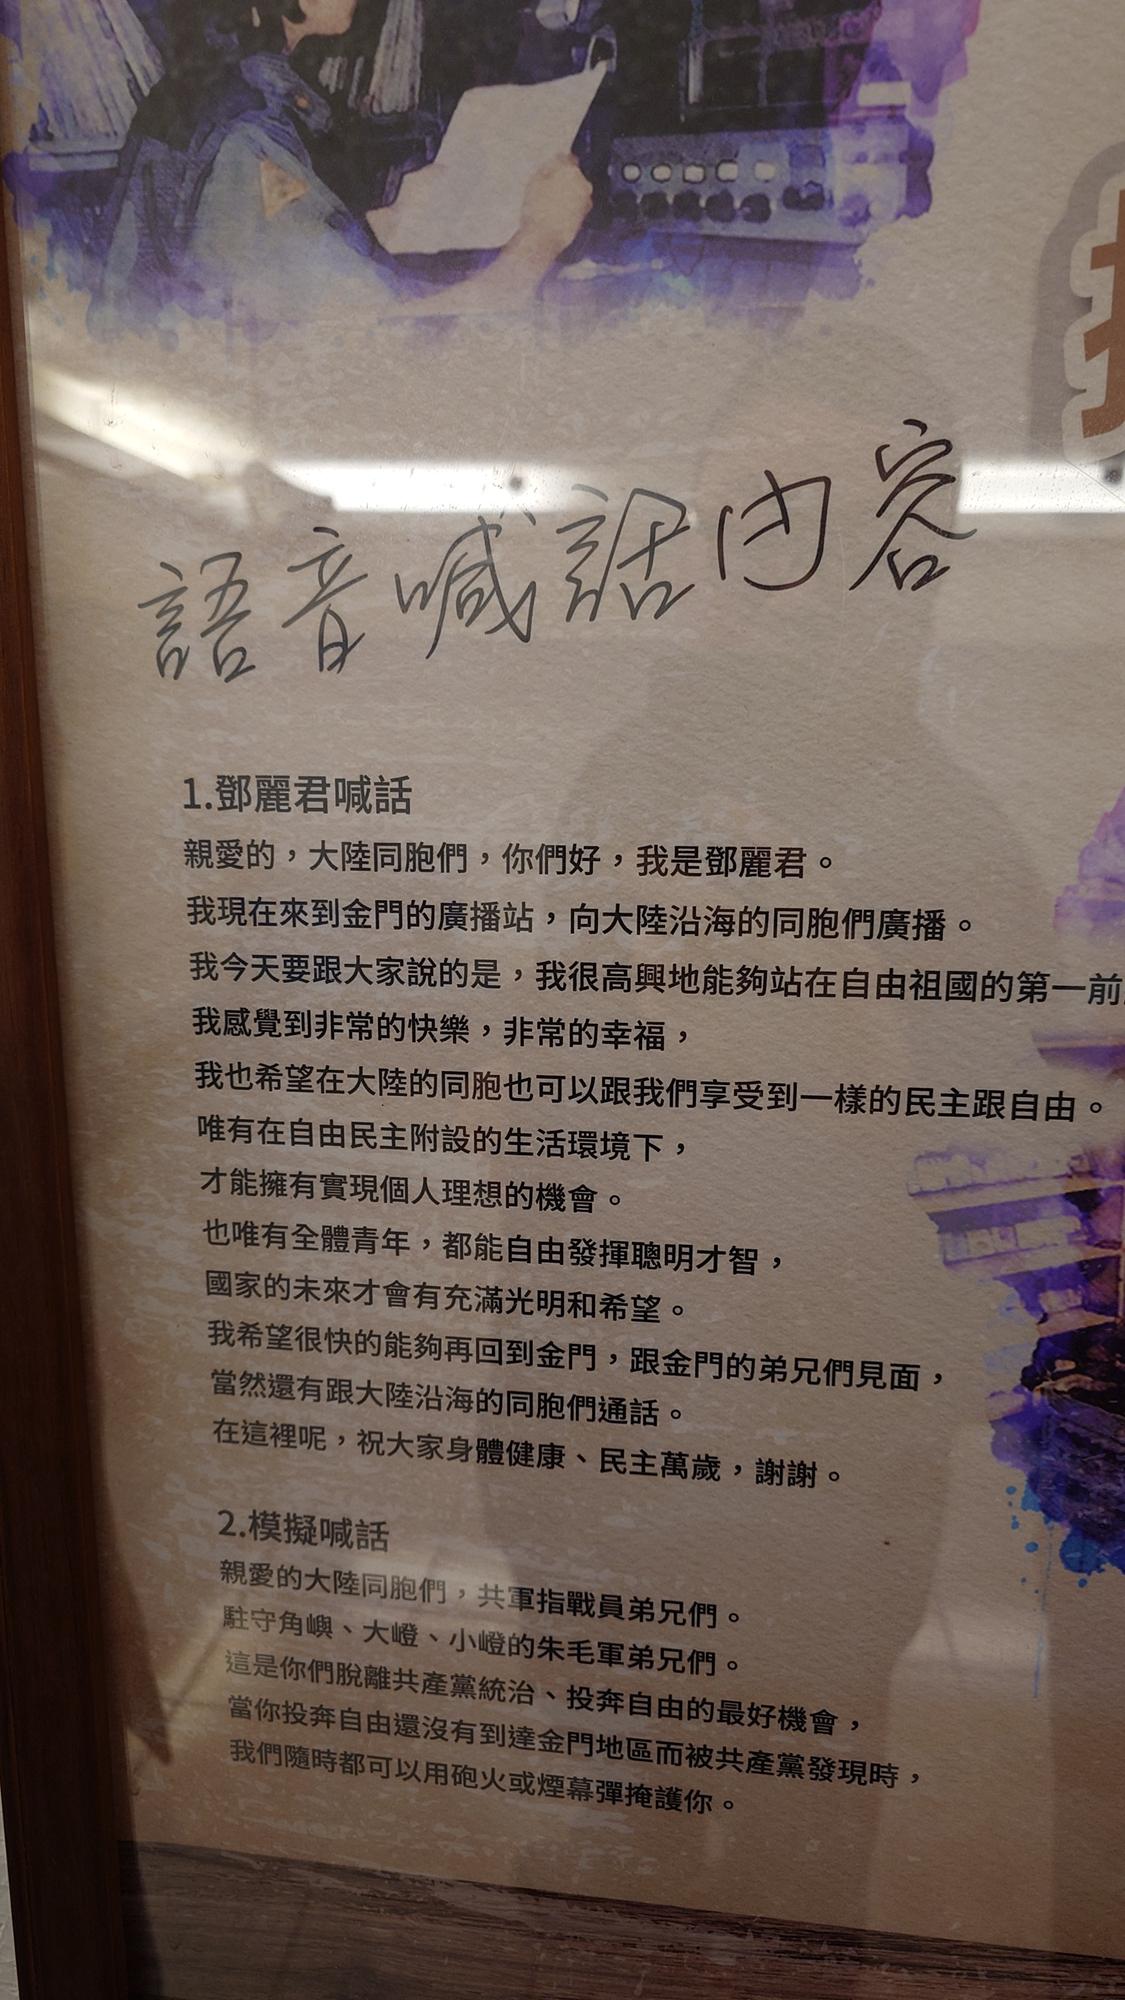 語音喊話內容
1.鄧麗君喊話
親愛的，大陸同胞們，你們好，我是鄧麗君。
我現在來到金門的廣播站，向大陸沿海的同胞們廣播。
我今天要跟大家說的是，我很高興地能夠站在自由祖國的第一前
我感覺到非常的快樂，非常的幸福，
我也希望在大陸的同胞也可以跟我們享受到一樣的民主跟自由。
唯有在自由民主附設的生活環境下，
才能擁有實現個人理想的機會。
也唯有全體青年，都能自由發揮聰明才智，
國家的未來才會有充滿光明和希望。
我希望很快的能夠再回到金門，跟金門的弟兄們見面，
當然還有跟大陸沿海的同胞們通話。
在這裡呢，祝大家身體健康、民主萬歲，謝謝。
2.模擬喊話
親愛的大陸同胞們，共軍指戰員弟兄們。
駐守角嶼、大嶝、小嶝的朱毛軍弟兄們。
這是你們脫離共產黨統治、投奔自由的最好機會，
當你投奔自由還沒有到達金門地區而被共產黨發現時，
我們隨時都可以用砲火或煙幕彈掩護你。